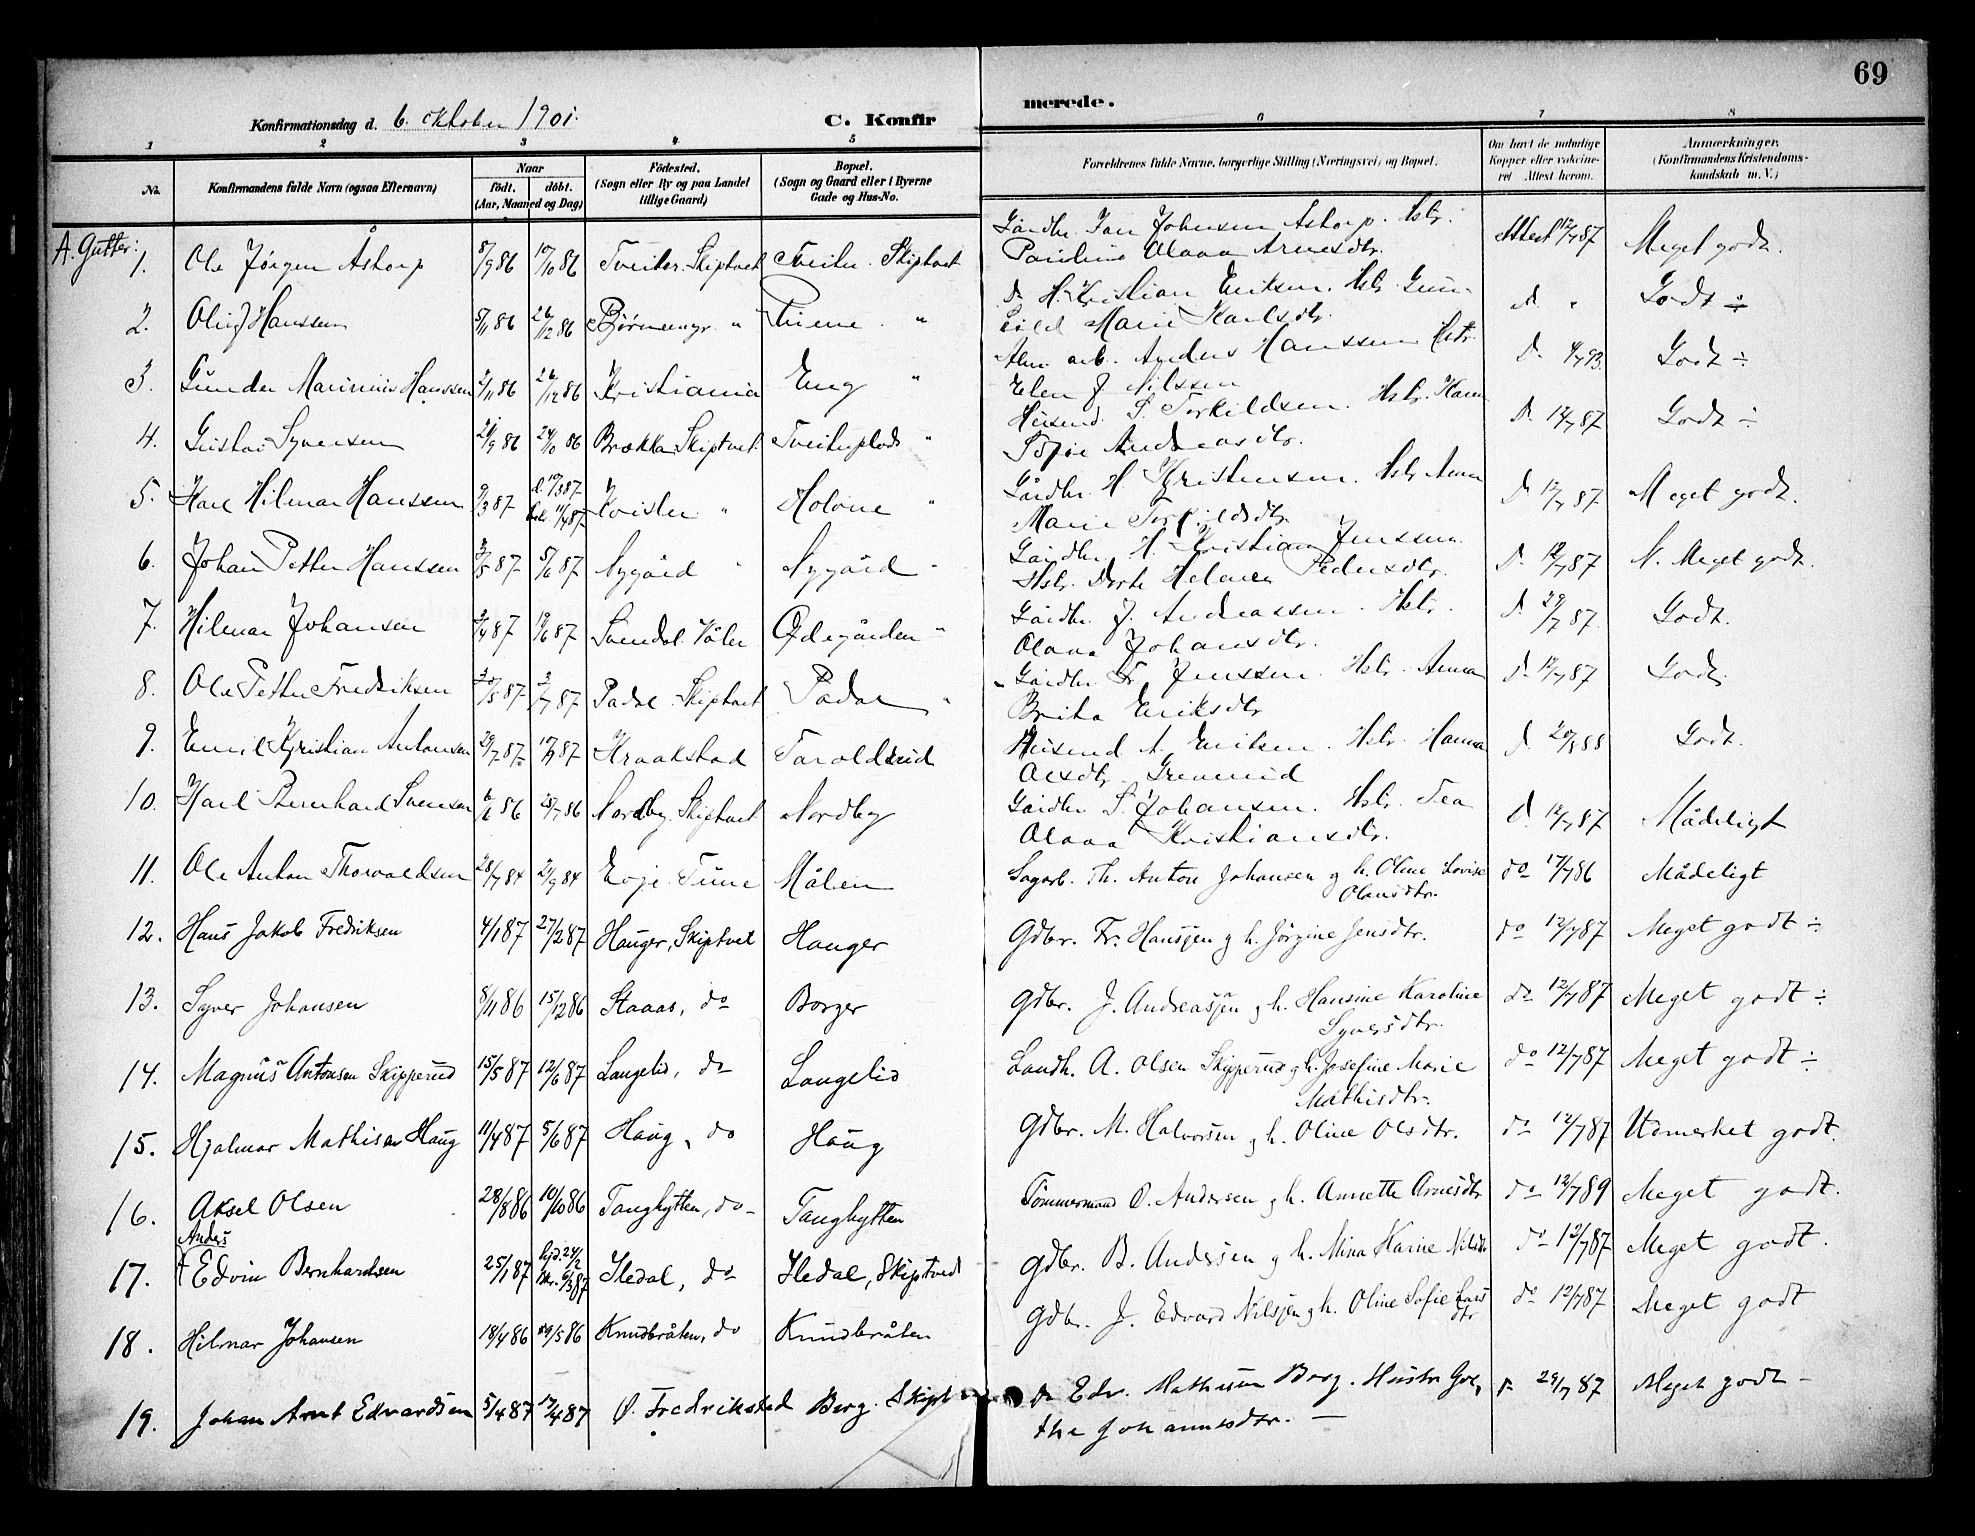 69
Konfirmationsdag d. 6. oktober 1901.
C. Konfirmerede.
1 2 3 4 5 6 7 8
No. Konfirmandens fulde Navn (ogsaa Efternavn) Naar født. døbt. (Aar, Maaned og Dag) Fødested. (Sogn eller By og paa Landet tillige Gaard) Bopæl. (Sogn og Gaard eller i Byerne Gade og Hus-No. Forældrenes fulde Navne, borgerlige Stilling (Næringsvei) og Bopæl. Om havt de naturlige Kopper eller vaksineret Attest herom. Anmærkninger. (Konfirmandens Kristendomskundskab m. V.)
A. Gutter:
1. Ole Jörgen Åstorp 8/9 86 17/10 86 Tveiter. Skiptvet Tveiter. Skiptvet Gårdbr. Jan Johansen Åstorp. Hstr. Attest 12/7 87 Meget godt.
Pauline Olava Arnesdtr.
2. Oluf Hanssen 5/11 86 26/12 86 " " D. H. Kristian Eriksen. Hstr. Gun- D. " Godt ÷
Marie Karlsdtr.
3. Gunder Marinius Hanssen 2/11 86 26/12 86 Kristiania Eng " Alm. arb. Anders Hanssen Hstr. D. Godt ÷
Elen J. Nilssen
4. Gustav Syversen 21/9 86 24/10 86 Brækka Skiptvet Tveiterplads " Husmd. S. Torkildsen. Hstr. Karen D. 12/7 87 Godt ÷
Andreasdtr.
5. Karl Hilmar Hanssen 9/3 87 Kvister " " Gårdbr. H. Kristensen. Hstr. Anna D. 12/7 87 Meget godt.
Marie Torkildsdtr.
6. Johan Petter Hanssen 3/5 87 5/6 87 Nygård " Nygård " Gårdbr. H. Kristian Jenssen. D. 12/7 87 N. Meget godt.
Hstr. Dorte Helene Pedersdtr.
7. Hilmar Johansen 2/4 87 19/6 87 Svendal Våler Ødegården " Gårdbr. J. Andreassen. Hstr. D. 29/7 87 Godt.
Olava Johansdtr.
8. Ole Petter Fredriksen 30/5 87 3/7 87 Padal Skiptvet Padal " Gårdbr. Fr. Jenssen. Hstr. Anna D. 12/7 87 Godt
Brita Eriksdtr
9. Emil Kristian Antonsen 29/7 87 Kraakstad Taraldsrud Husmd A. Eriksen. Hstr. Hanna D. 20/8 88 Godt.
Olsdtr. Grenerud
10. Karl Bernhard Svensen 6/6 86 25/7 86 Nordby. Skiptvet Nordby Gårdbr. S. Johansen. Hstr. Tea D. 12/7 87 Mådeligt
Olava Kristiansdtr.
11. Ole Anton Thorvaldsen 28/7 84 21/9 84 Evje. Tune Målen Sagarb. Th. Anton Johansen og h. Oline Lovise do 17/7 86 Mådeligt
Olausdtr.
12. Hans Jakob Fredriksen 4/1 87 27/2 87 Hauger, Skiptvet Hauger Gdbr. Fr. Hansen og h. Jörgine Jensdtr. do 12/7 87 Meget godt ÷
13. Syver Johansen 8/11 86 15/12 86 Staaas, do Borger Gdbr. J. Andreasen og h. Hansine Karoline do 12/7 87 Meget godt ÷
Syversdtr.
14. Magnus Antonsen Skipperud 15/5 87 12/6 87 Langelid, do Langelid Landh. A. Olsen Skipperud og h. Josefine Marie do 12/7 87 Meget godt ÷
Mathisdtr.
15. Hjalmar Mathisen Haug 11/4 87 5/6 87 Haug, do Haug Gdbr. M. Halvorsen og h. Oline Olsdtr. do 12/7 87 Udmerket godt.
16. Aksel Olsen 28/8 86 10/10 86 Taughytten, do Taughytten Tömmermand O. Andersen og h. Annette Arnesdtr do 12/7 89 Meget godt.
Anders
17. Edvin Bernhardsen 25/1 87 hjd. 24/2 Bkr. 6/3 87 Iledal, do Iledal, Skiptvedt gdbr. B. Andersen og h. Mina Karine Nilsdtr do 12/7 87 Meget godt.
18. Hilmar Johansen 18/4 86 /5 86 Knudbråten, do Knudbråten gdbr. J. Edvard Nilsen og h. Oline Sofie Larsdtr do 12/7 87 Meget godt
19. Johan Arnt Edvardsen 5/4 87 17/4 87 Ø. Fredrikstad Berg. Skiptv. D. Edv. Mathisen Berg. Hustr. Go- D. 29/7 87 Meget godt –
the Johannesdtr. –